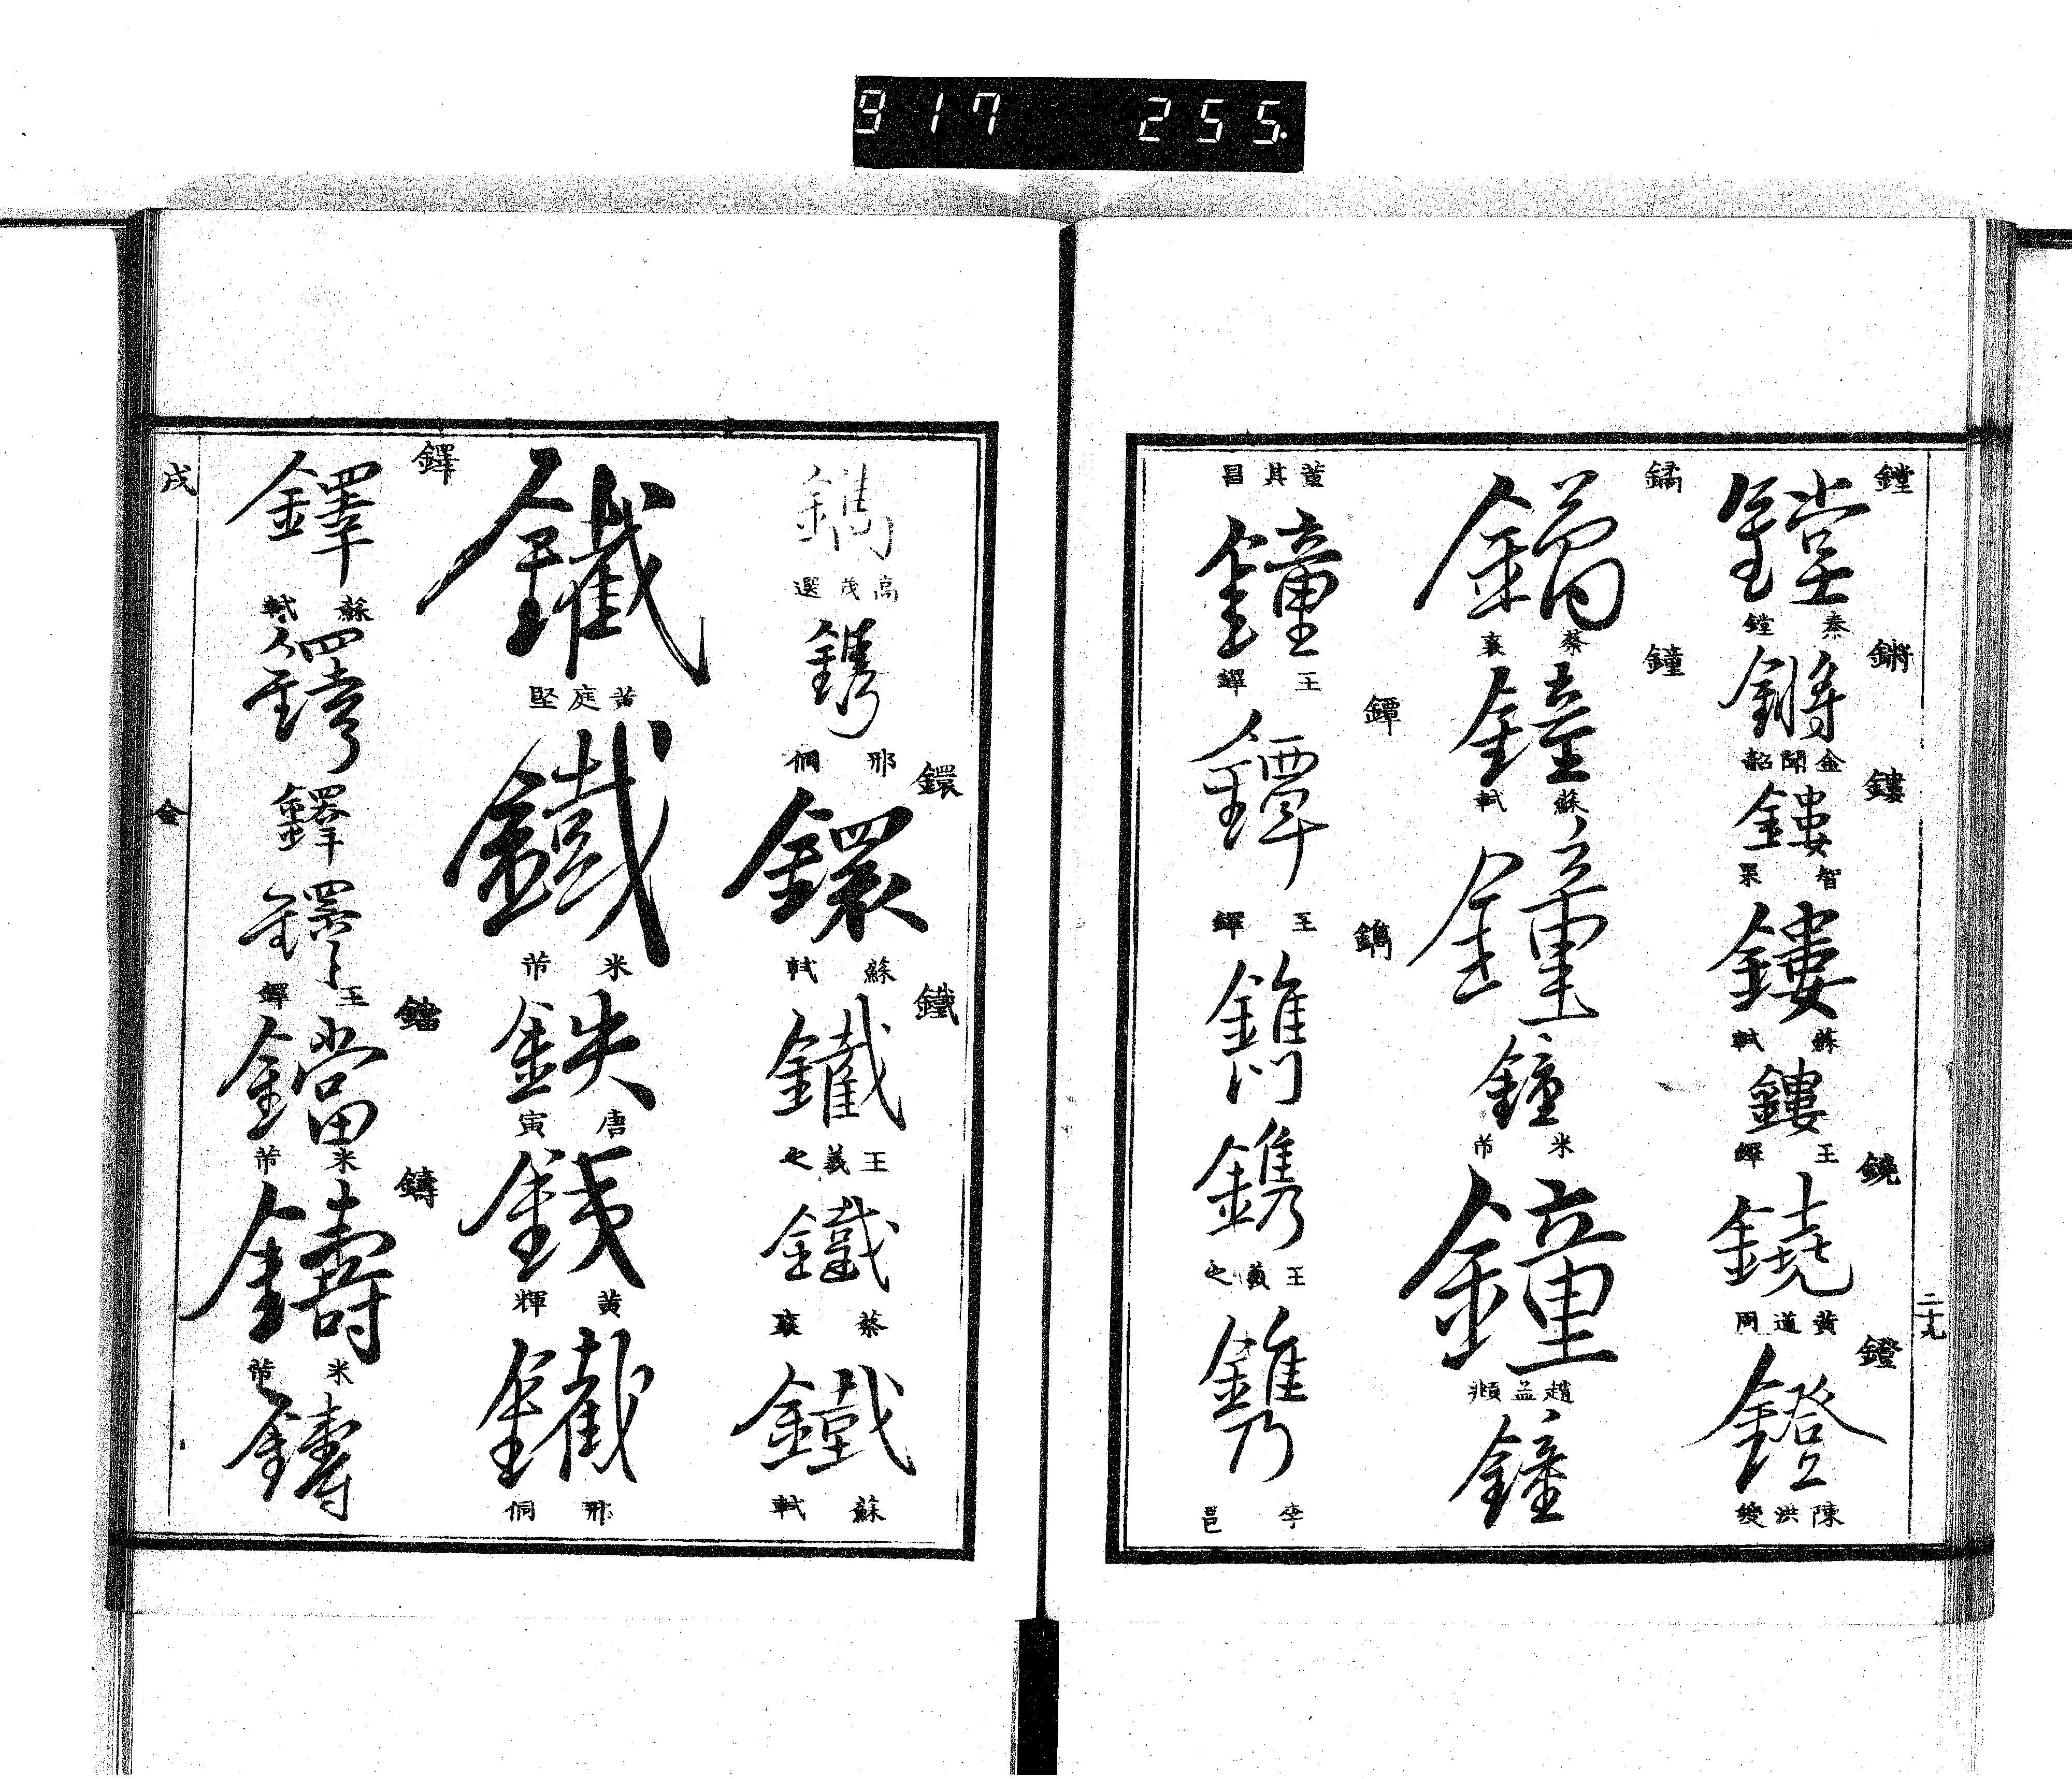 917 255.
鏜
鏜
秦鏜
鏘
鏘
金聞韶
鏤
鏤
智果
鏤
蘇軾
鏤
王鐸
鐃
鐃
黃道周
鐙
鐙
陳洪綬
二十九
鐍
鐍
蔡襄
鐘
鐘
蘇軾
鐘
鐘
米芾
鐘
趙孟頫
鐘
董其昌
鐘
王鐸
鐔
鐔
王鐸
鐫
鐫
鐫
王羲之
鐫
李邕
鐫
高茂選
鐫
邢侗
鐶
鐶
蘇軾
鐵
鐵
王羲之
鐵
蔡襄
鐵
蘇軾
鐵
黃庭堅
鐵
米芾
鉄
唐寅
銕
黃輝
鐵
邢侗
鐸
鐸
蘇軾
鐸
鐸
鐸
王鐸
鐺
鐺
米芾
鑄
鑄
米芾
鑄
戌
金